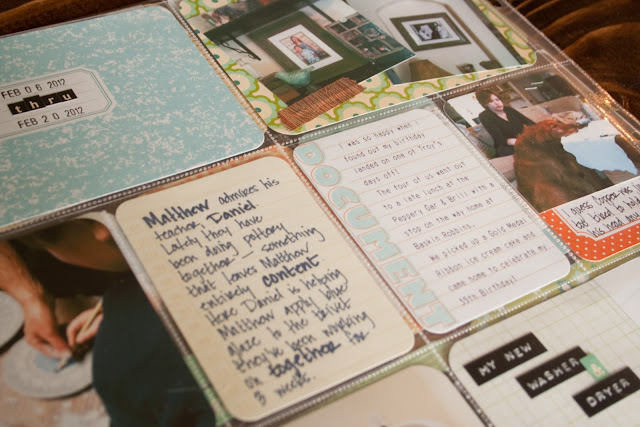 FEB 06 2012
thru
FEB 20 2012
Matthew admires his
teacher, Daniel.
Lately they have
been doing pottery
together — something
that leaves Matthew
entirely content.
Here Daniel is helping
Matthew apply blue
glaze to the trivet
they've been working
on together for
3 weeks.
DOCUMENT
I was so happy when I
found out my birthday
landed on one of Troy's
days off!
The four of us went out
to a late lunch at the
& Grill with a
stop on the way home at
Baskin Robbins.
We picked up a Gold Medal
Ribbon ice cream cake and
came home to celebrate my
Birthday!
I guess Cooper was
too tired to hold
his head
MY NEW
WASHER &
DRYER